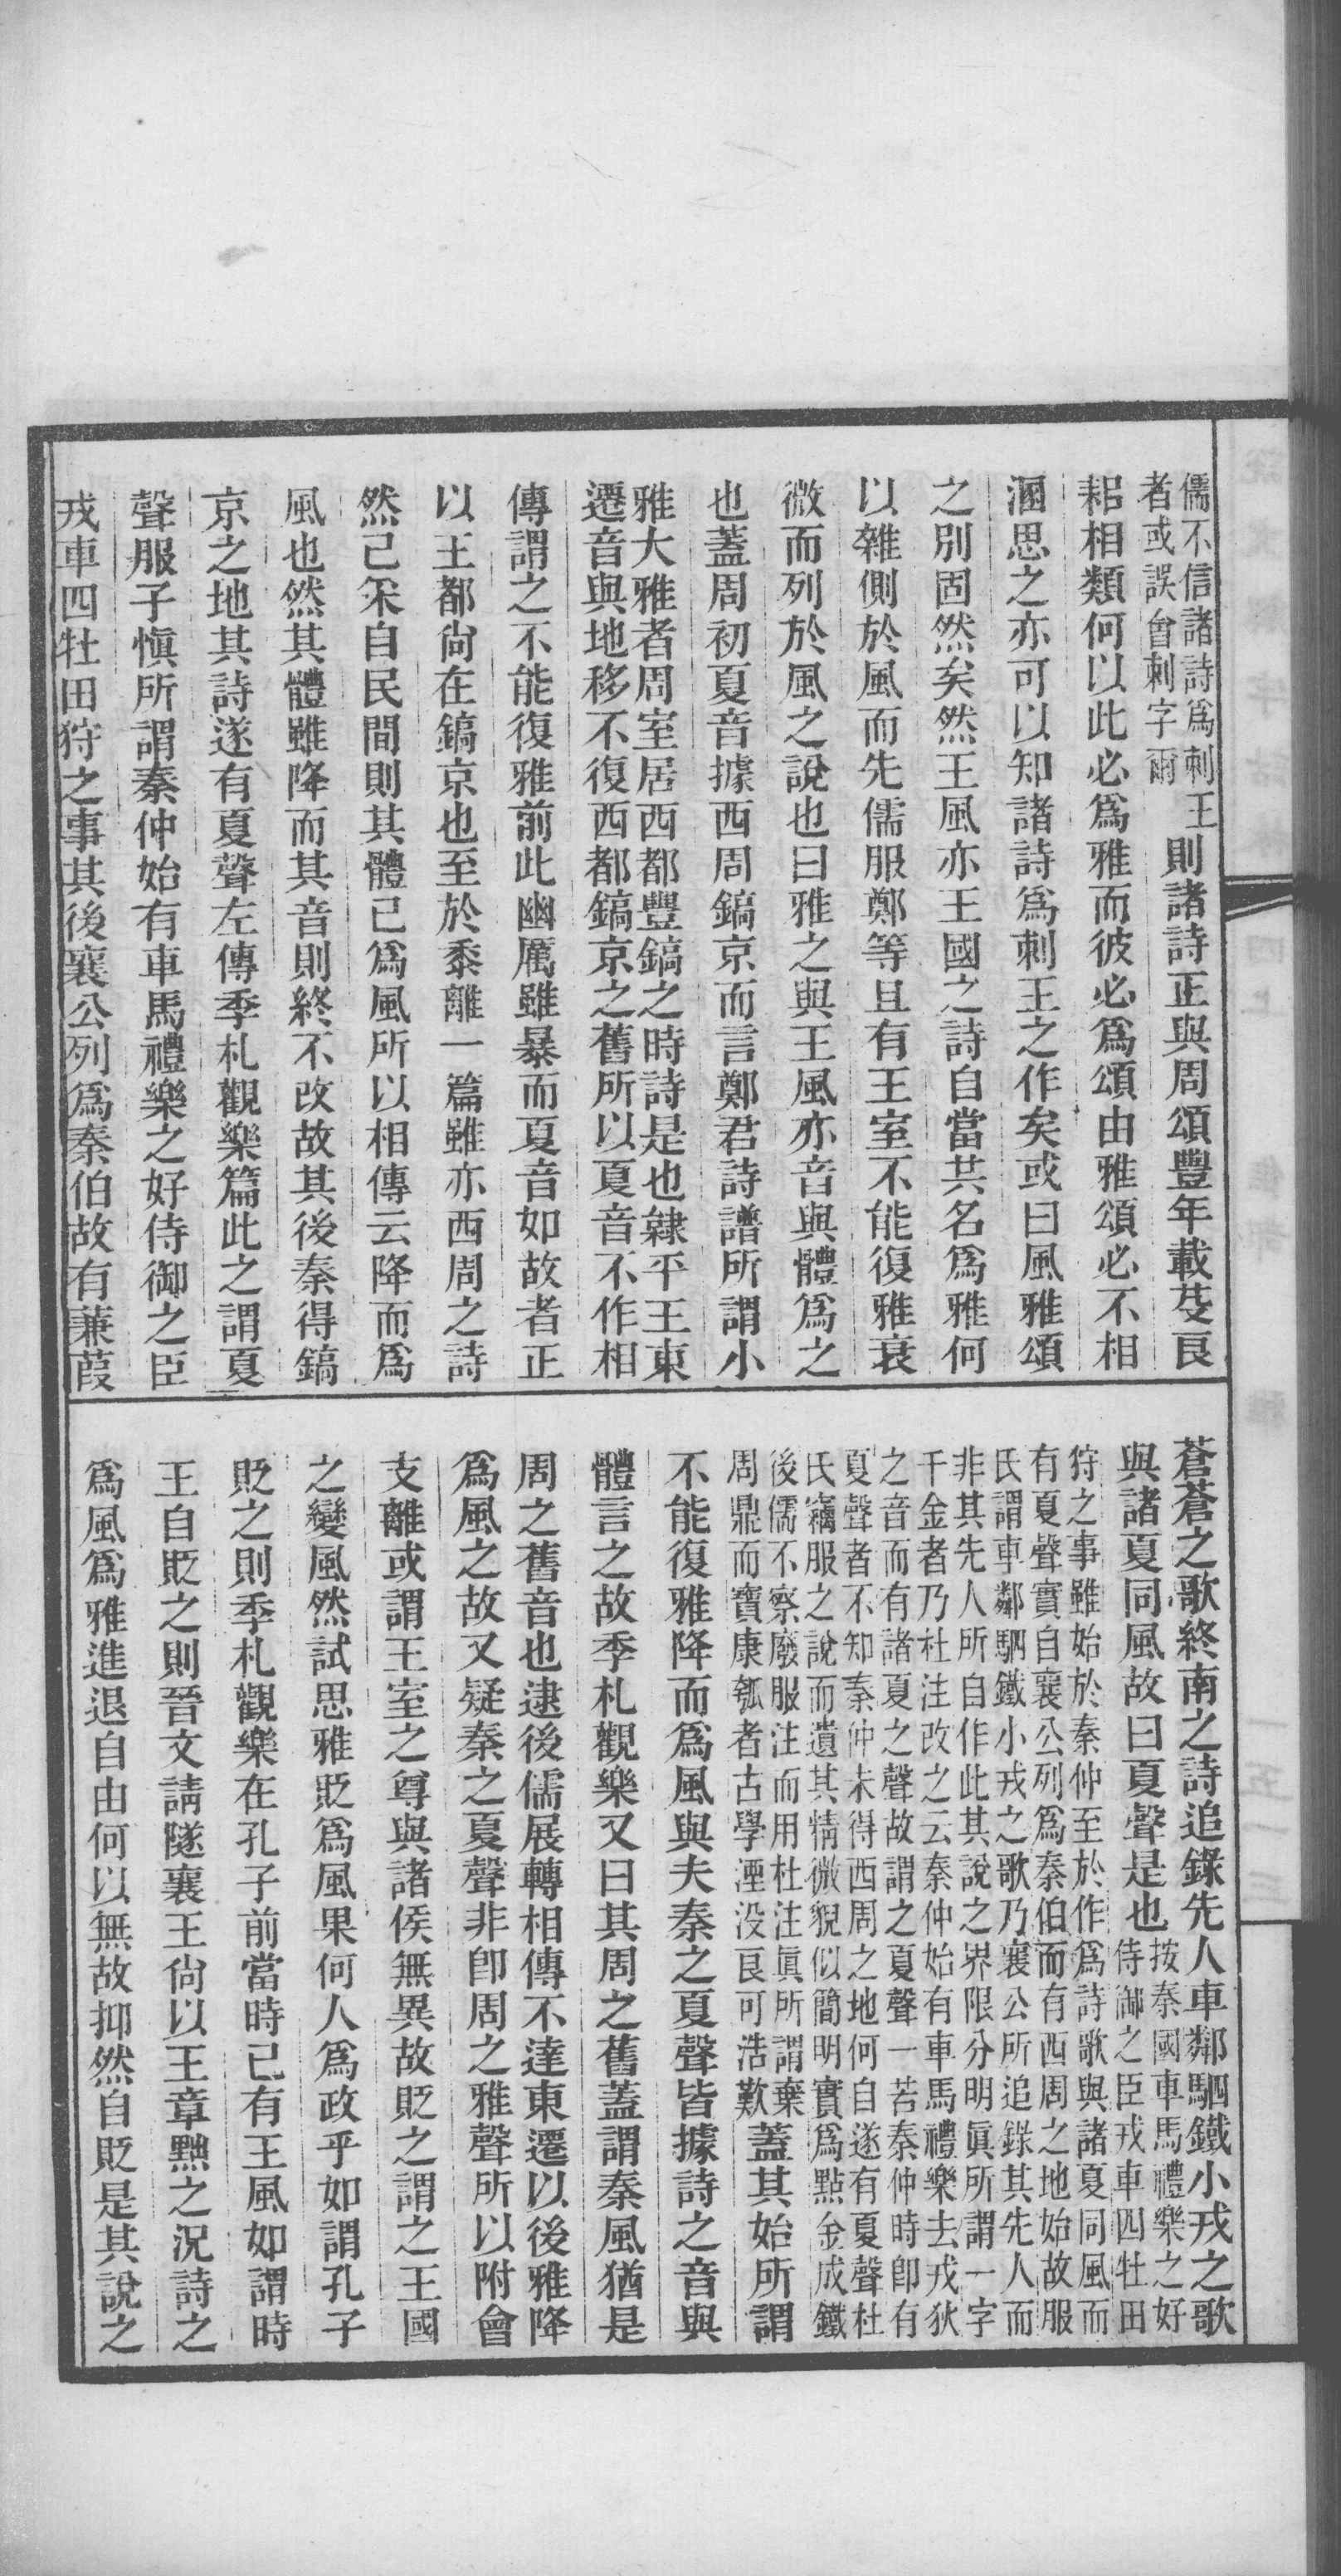 儒不信諸詩爲刺王
者或誤會刺字爾
則諸詩正與周頌豐年載芟良
耜相類何以此必爲雅而彼必爲頌由雅頌必不相
溷思之亦可以知諸詩爲刺王之作矣或曰風雅頌
之別固然矣然王風亦王國之詩自當共名爲雅何
以雜側於風而先儒服鄭等且有王室不能復雅衰
微而列於風之說也曰雅之與王風亦音與體爲之
也蓋周初夏音據西周鎬京而言鄭君詩譜所謂小
雅大雅者周室居西都豐鎬之時詩是也隸平王東
遷音與地移不復西都鎬京之舊所以夏音不作相
傳謂之不能復雅前此幽厲雖暴而夏音如故者正
以王都尙在鎬京也至於黍離一篇雖亦西周之詩
然已采自民間則其體已爲風所以相傳云降而爲
風也然其體雖降而其音則終不改故其後秦得鎬
京之地其詩遂有夏聲左傳季札觀樂篇此之謂夏
聲服子愼所謂秦仲始有車馬禮樂之好侍御之臣
戎車四牡田狩之事其後襄公列爲秦伯故有蒹葭
蒼蒼之歌終南之詩追錄先人車鄰駟鐵小戎之歌
與諸夏同風故曰夏聲是也
按秦國車馬禮樂之好
侍御之臣戎車四牡田
狩之事雖始於秦仲至於作爲詩歌與諸夏同風而
有夏聲實自襄公列爲秦伯而有西周之地始故服
氏謂車鄰駟鐵小戎之歌乃襄公所追錄其先人而
非其先人所自作此其說之界限分明眞所謂一字
千金者乃杜注改之云秦仲始有車馬禮樂去戎狄
之音而有諸夏之聲故謂之夏聲一若秦仲時卽有
夏聲者不知秦仲未得西周之地何自遂有夏聲杜
氏竊服之說而遺其精微貌似簡明實爲點金成鐵
後儒不察廢服注而用杜注眞所謂棄
周鼎而寶康瓠者古學湮没良可浩歎
蓋其始所謂
不能復雅降而爲風與夫秦之夏聲皆據詩之音與
體言之故季札觀樂又曰其周之舊蓋謂秦風猶是
周之舊音也逮後儒展轉相傳不達東遷以後雅降
爲風之故又疑秦之夏聲非卽周之雅聲所以附會
支離或謂王室之尊與諸侯無異故貶之謂之王國
之變風然試思雅貶爲風果何人爲政乎如謂孔子
貶之則季札觀樂在孔子前當時已有王風如謂時
王自貶之則晉文請隧襄王尙以王章黜之況詩之
爲風爲雅進退自由何以無故抑然自貶是其說之